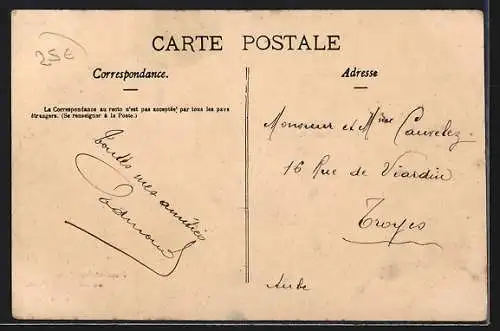 25€
CARTE POSTALE
Correspondance.
La Correspondance au recto n'est pas acceptée par tous les pays
étrangers. (Se renseigner à la Poste.)
toutes mes amitiés
Adresse
Monsieur et Mme Cauvelez
16 Rue de Viardin
Troyes
Aube